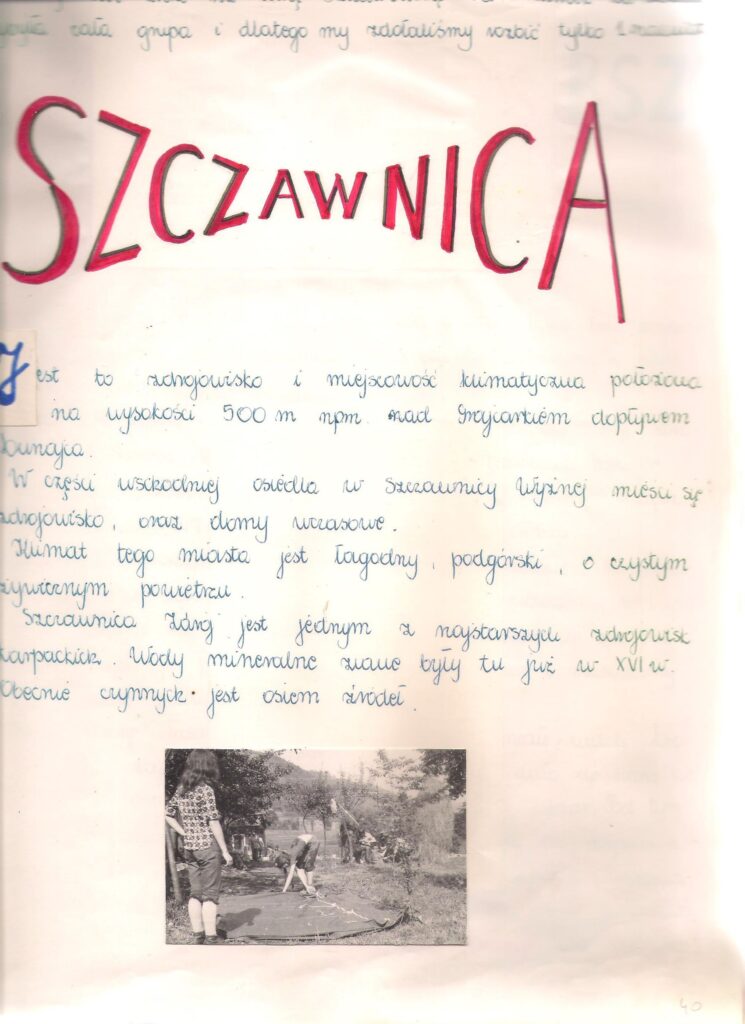 cała grupa i dlatego my zdołaliśmy rozbić tylko 1
SZCZAWNICA
Jest to zdrojowisko i miejscowość klimatyczna położona
na wysokości 500 m npm nad Grajcarkiem dopływem
Dunajca.
W części wschodniej osiedla w Szczawnicy Wyżnej mieści się
zdrojowisko, oraz domy wczasowe.
Klimat tego miasta jest łagodny, podgórski, o czystym
żywicznym powietrzu.
Szczawnica Zdrój jest jednym z najstarszych zdrojowisk
karpackich. Wody mineralne znane były tu już w XVI w.
Obecnie czynnych jest osiem źródeł.
40